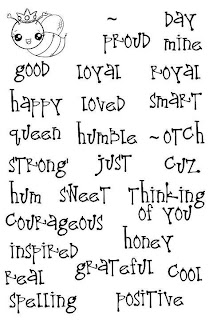 ~ DAY
PROUD MINE
GOOD LOYAL ROYAL
HAPPY LOVED SMART
QUEEN HUMBLE ~OTCH
STRONG JUST CUZ.
HUM SWEET THINKING
OF YOU
COURAGEOUS
HONEY
INSPIRED
GRATEFUL COOL
REAL
SPELLING POSITIVE